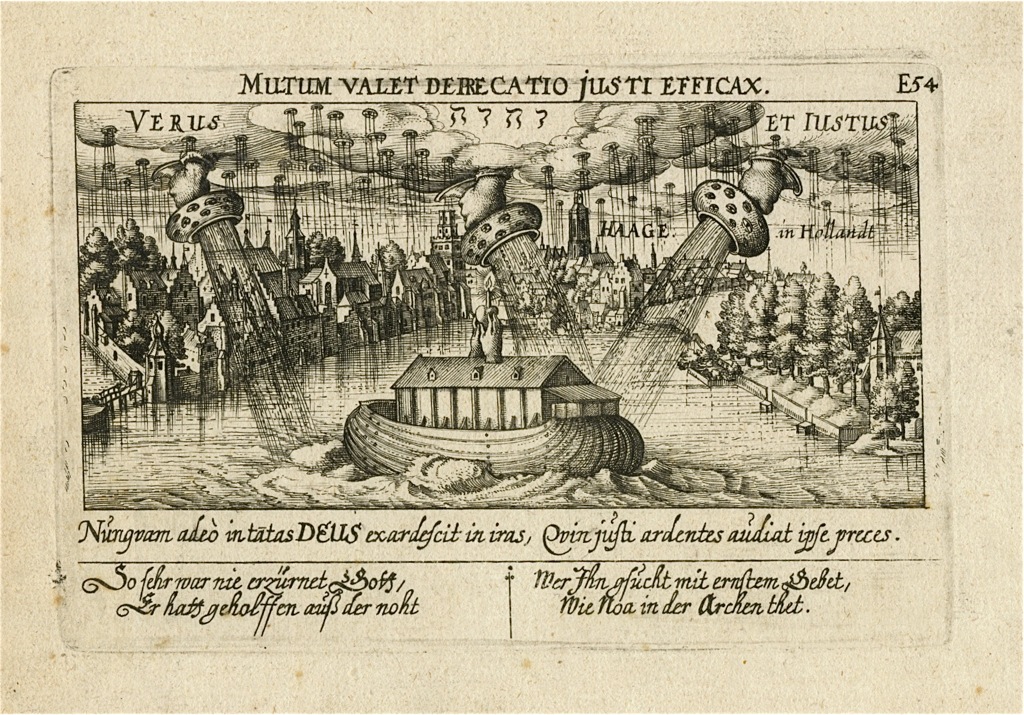 MULTUM VALET DEPRECATIO JUSTI EFFICAX.
E54
VERUS
ET IUSTUS
HAAGE.
in Hollandt
Nunqvam adeò in tātas DEUS exardescit in iras, Qvin justi ardentes audiat ipse preces.
So sehr war nie erzürnet Gott,
Er hatt geholffen auß der noht
Wer Ihn gsucht mit ernstem Gebet,
Wie Noa in der Archen thet.